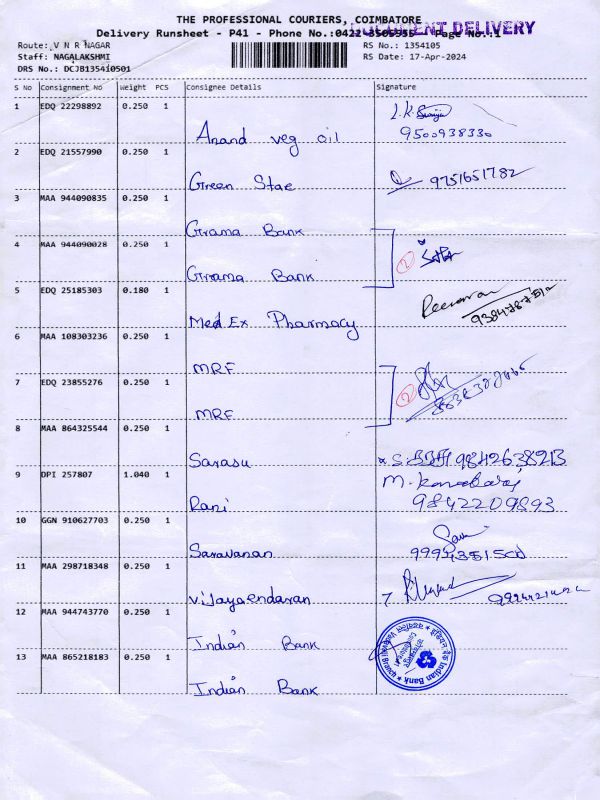 THE PROFESSIONAL COURIERS, COIMBATORE
DOCUMENT DELIVERY
Delivery Runsheet - P41 - Phone No.:0422 Page No.:1
Route: V N R NAGAR
RS No.: 1354105
Staff: NAGALAKSHMI
RS Date: 17-Apr-2024
DRS No.: DCJB135410501
S No Consignment No Weight PCS Consignee Details Signature
1 EDQ 22298892 0.250 1
Anand veg oil 9500938330
2 EDQ 21557990 0.250 1
Green Stae 9751651782
3 MAA 944090835 0.250 1
Grama Bank
4 MAA 944090028 0.250 1
Grama Bank 2
5 EDQ 25185303 0.180 1
Med Ex Pharmacy
6 MAA 108303236 0.250 1
MRF
7 EDQ 23855276 0.250 1
MRF 2
8 MAA 864325544 0.250 1
Sarasu 9842638213
9 DPI 257807 1.040 1
Rani M. Kanagaraj
9842209893
10 GGN 910627703 0.250 1
Saravanan
11 MAA 298718348 0.250 1
Vijayaendaran
12 MAA 944743770 0.250 1
Indian Bank
13 MAA 865218183 0.250 1
Indian Bank
Indian Bank